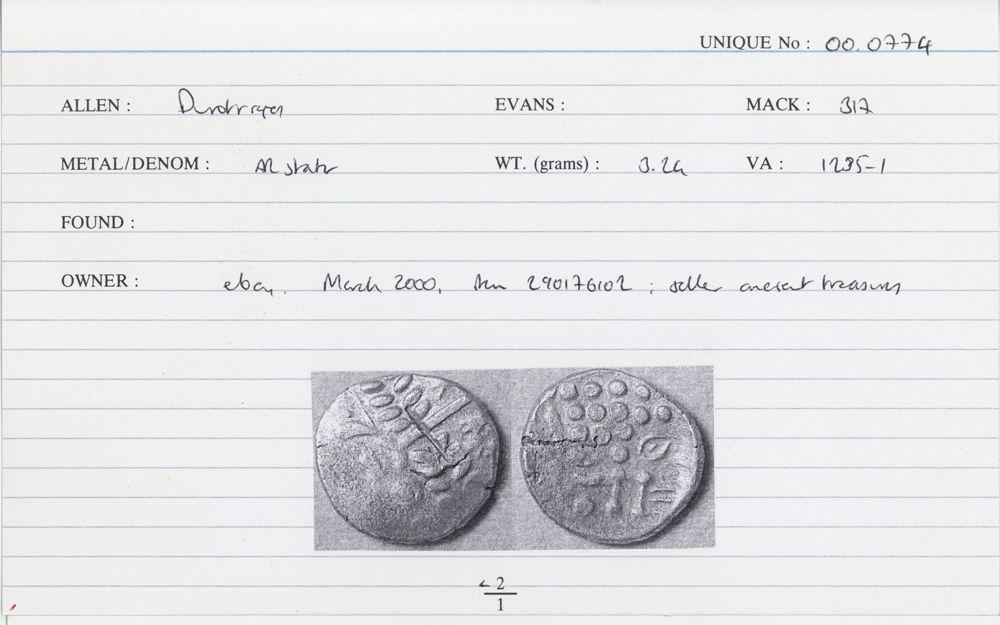 UNIQUE No : 00.0774
ALLEN : Durotriges EVANS : MACK : 317
METAL/DENOM : AR stater WT. (grams) : 3.24 VA : 1235-1
FOUND :
OWNER : ebay. March 2000, item 290176102 ; seller ancient treasures
2
1